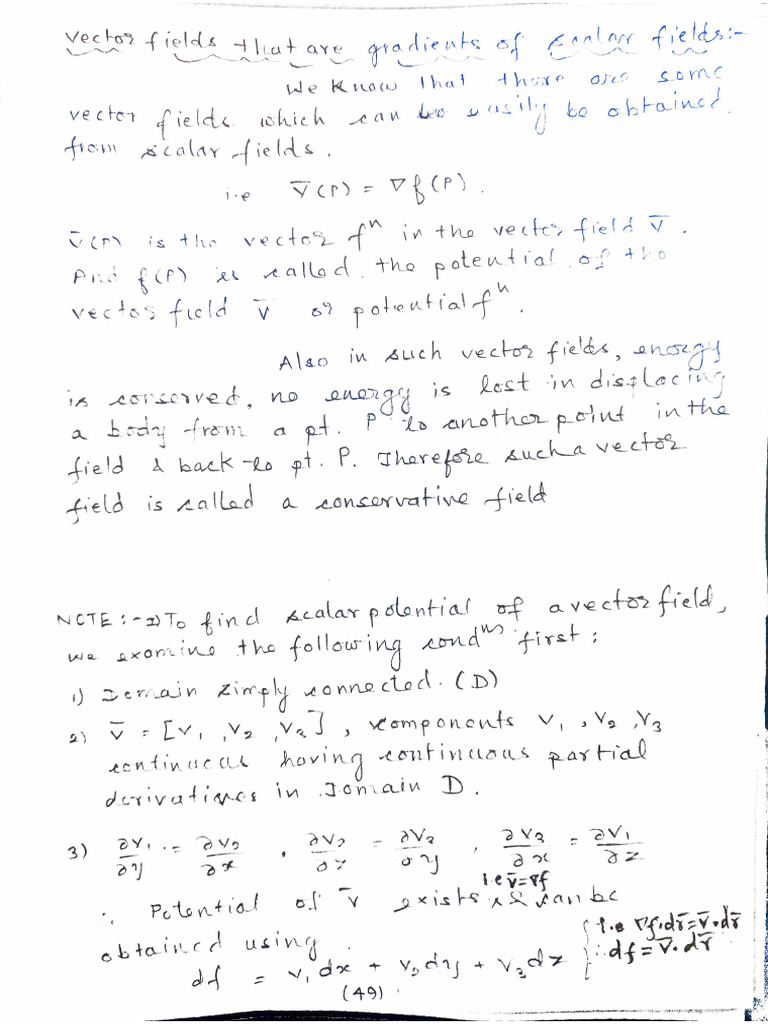 Vector fields that are gradients of scalar fields:-
We know that there are some
vector fields which can be easily be obtained
from scalar fields.
i.e v̄(P) = ∇f(P).
v̄(P) is the vector fⁿ in the vector field v̄.
And f(P) is called the potential of the
vector field v̄ or potential fⁿ.
Also in such vector fields, energy
is conserved, no energy is lost in displacing
a body from a pt. P to another point in the
field & back to pt. P. Therefore such a vector
field is called a conservative field
NOTE :- To find scalar potential of a vector field,
we examine the following condⁿˢ first :
1) Domain simply connected. (D)
2) v̄ = [v₁, v₂, v₃], components v₁, v₂, v₃
continuous having continuous partial
derivatives in Domain D.
3) ∂v₁/∂y = ∂v₂/∂x , ∂v₂/∂z = ∂v₃/∂y , ∂v₃/∂x = ∂v₁/∂z
i.e v̄=∇f
∴ Potential of v̄ exists & can be
obtained using
df = v₁dx + v₂dy + v₃dz { i.e ∇f.dr̄=v̄.dr̄
∴ df = v̄.dr̄
(49).